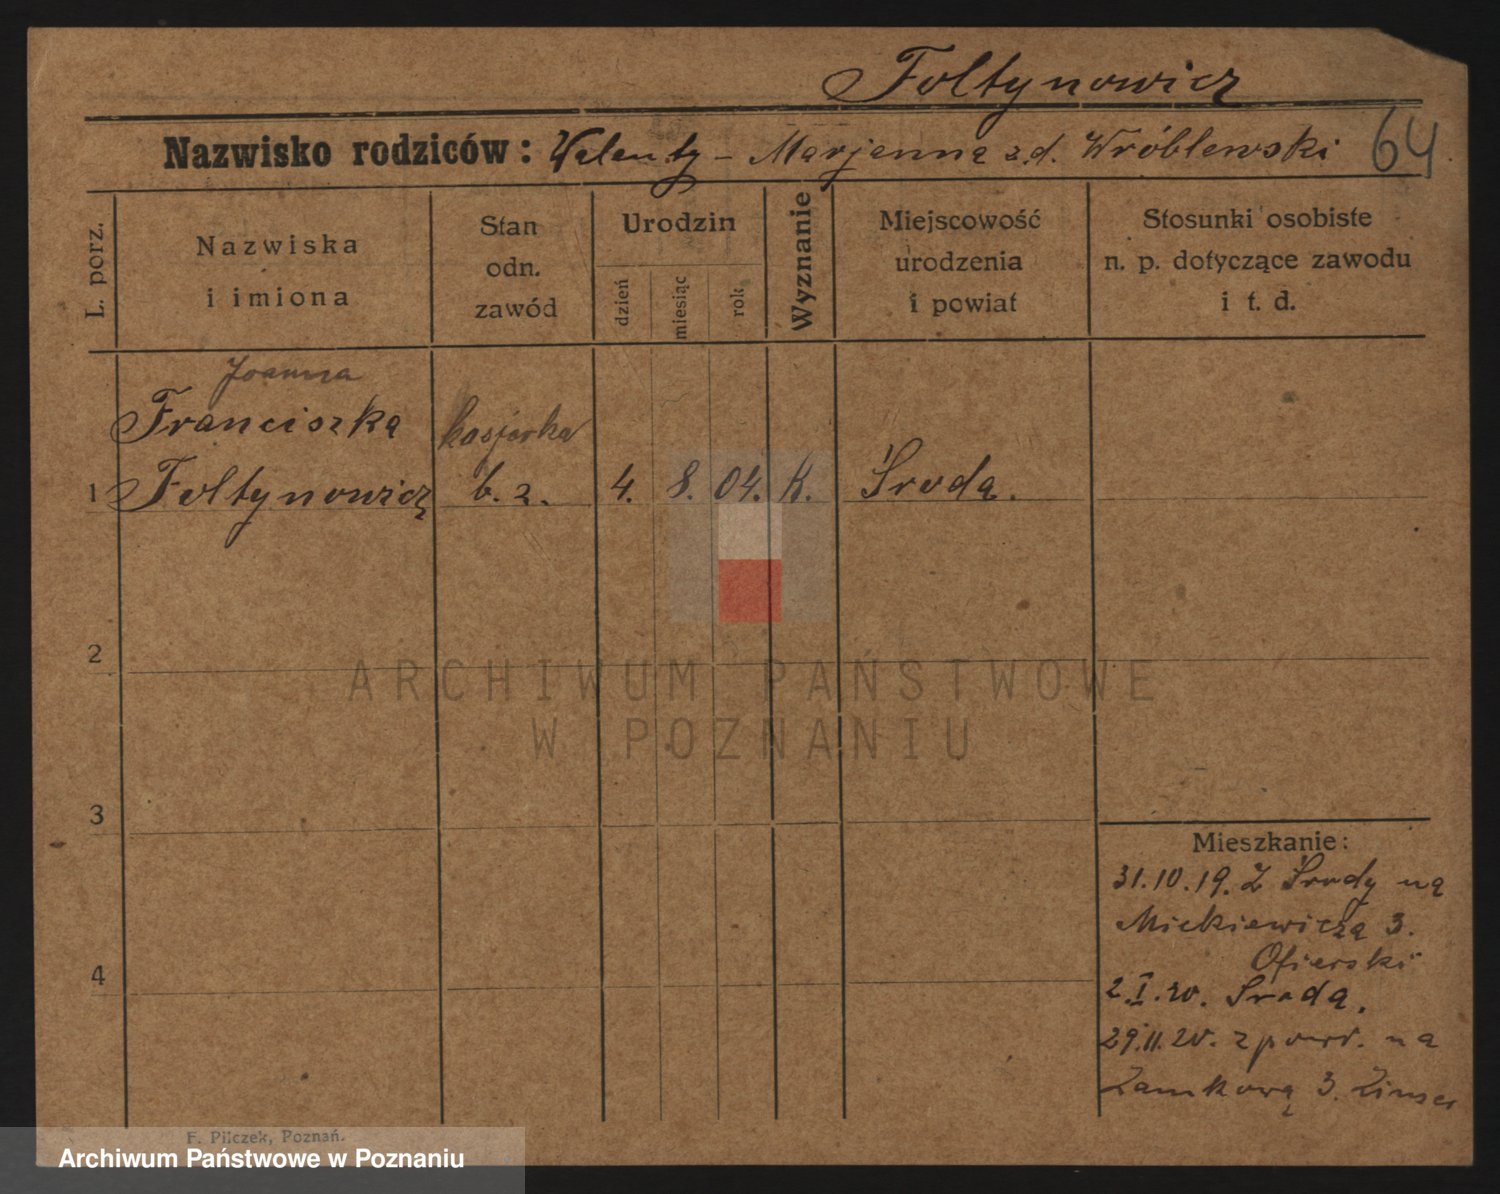 Foltynowicz
Nazwisko rodziców: Walenty – Marjanna z.d. Wróblewski 64
L. porz.
Nazwiska
i imiona
Stan
odn.
zawód
Urodzin
dzień
miesiąc
rok
Wyznanie
Miejscowość
urodzenia
i powiat
Stosunki osobiste
n. p. dotyczące zawodu
i t. d.
Joanna
Franciszka
kasjerka
1 Foltynowicz b. z. 4. 8. 04. K. Środa.
2
3
4
Mieszkanie:
31.10.19. Z Środy na
Mickiewicza 3.
Ofierski
2.I.20. Środa.
29.II.20. z powr. na
Zamkową 3.
F. Pilczek, Poznań.
ARCHIWUM PAŃSTWOWE
W POZNANIU
Archiwum Państwowe w Poznaniu